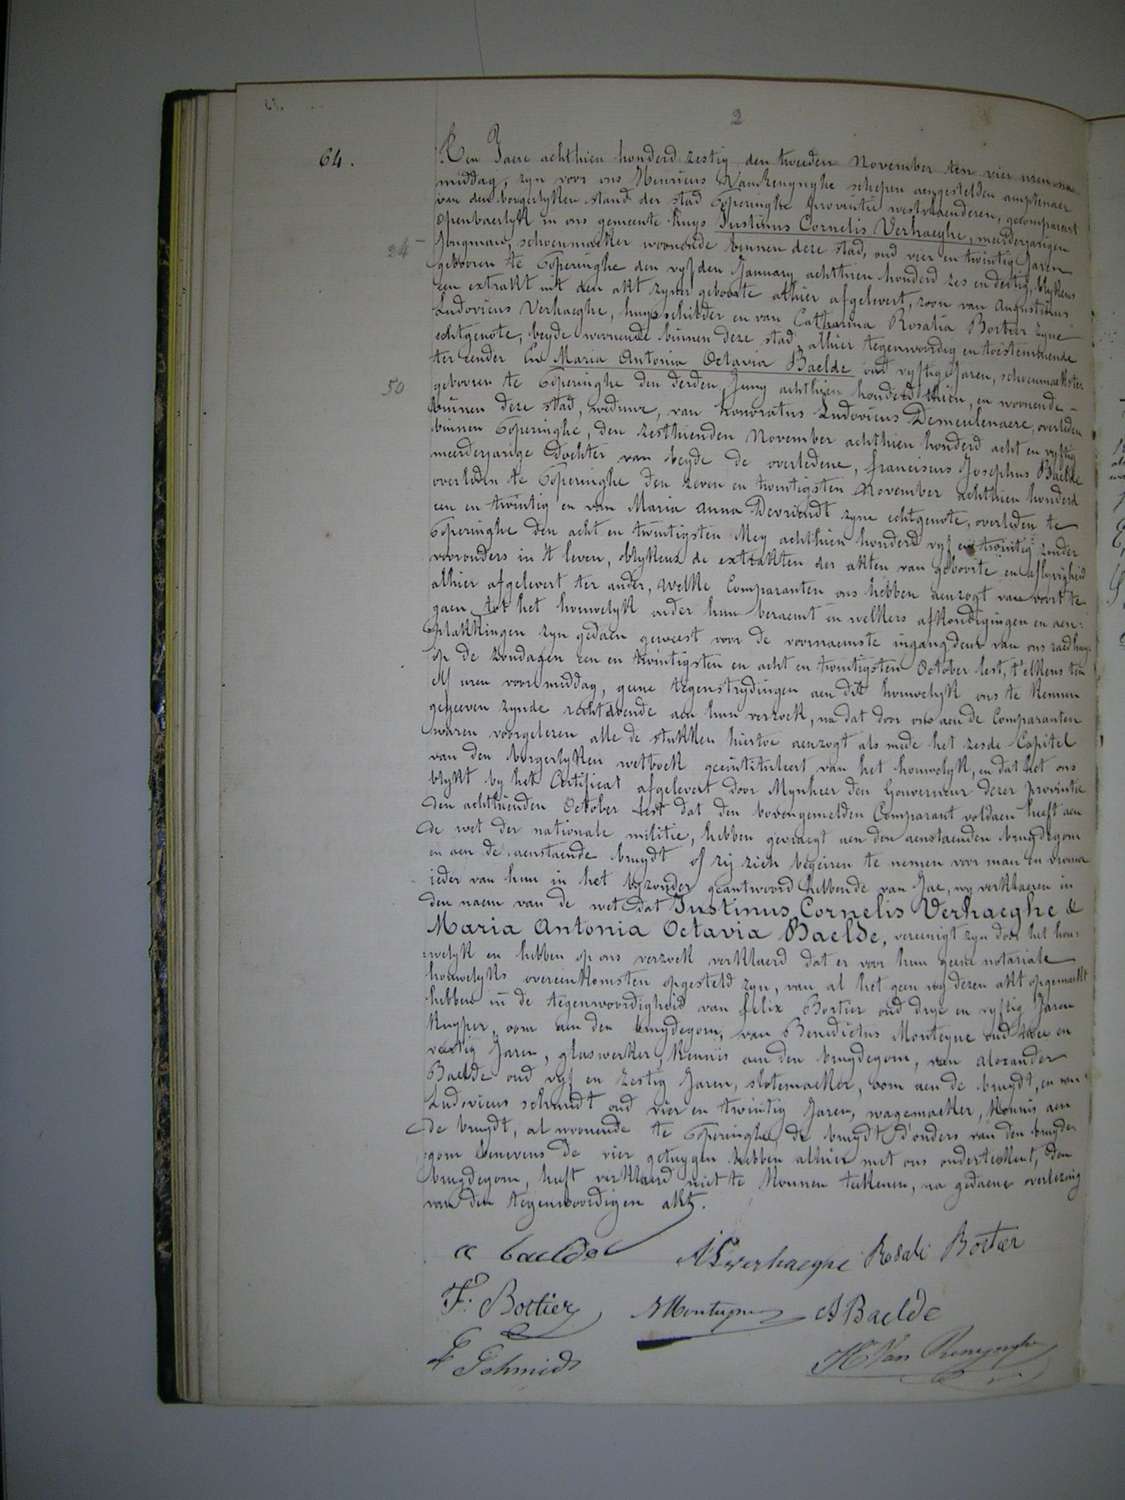 2
64.
Den Jaere achthien honderd zestig den tweeden November ten vier uren na
middag, zyn voor ons Henricus Van Renynghe schepen aengestelden amptenaer
van den borgerlyken stand der stad Poperinghe provintie westvlaenderen, gecompareert
openbaerlyk in ons gemeente huys Justinus Cornelis Verhaeghe, meerderjarigen
24
Jongman, schoenmaeker woonende binnen deze stad, oud vier en twintig Jaren
gebooren te Poperinghe den vyfden January achthien honderd zes en dertig, blykens
een extrakt uit den akt zyner geboorte alhier afgelevert, zoon van Augustinus
Ludovicus Verhaeghe, huysschilder en van Catharina Rosalia Bortier zyne
echtgenote, beyde woonende binnen deze stad, alhier tegenwoordig en toestemmende
ter eender En Maria Antonia Octavia Baelde oud vyftig Jaren, schoenmaekster
50
gebooren te Poperinghe den derden Juny achthien honderd thien, en woonende
binnen deze stad, weduwe, van honoratus Ludovicus Demeulenaere, overleden
binnen Poperinghe, den zesthienden November achthien honderd acht en vyftig
meerderjarige dochter van beyde de overledene, franciscus Josephus Baelde
overleden te Poperinghe den zeven en twintigsten November achthien honderd
een en twintig en van Maria Anna Devriendt zyne echtgenote, overleden te
Poperinghe den acht en twintigsten Mey achthien honderd vyf en twintig zonder
voorouders in 't leven, blykens de extrakten der akten van geboorte en aflyvigheid
alhier afgelevert ter ander, welke Comparanten ons hebben aenzogt van voort te
gaen tot het houwelyk onder hun beraemt en welkers afkondigingen en aen:
plakkingen zyn gedaen geweest voor de voornaemste ingangdeur van ons raedhuys
op de zondagen een en twintigsten en acht en twintigsten October lest, t'elkens ten
elf uren voormiddag, geene tegenstrydingen aen dit houwelyk ons te kennen
gegeeven zynde rechtdoende aen hun verzoek, na dat door ons aen de Comparanten
waren voorgelezen alle de stukken hiertoe aenzogt als mede het zesde Capitel
van den borgerlyken wetboek geintituleert van het houwelyk, en dat het ons
blykt by het Certificat afgelevert door Mynheer den Gouverneur dezer provintie
den achthienden October lest dat den bovengemelden Comparant voldaen heeft aen
de wet der nationale militie, hebben gevraegt aen den aenstaenden bruydegom
en aen de aenstaende bruydt of zij zich begeiren te nemen voor man en vrouw
ieder van hun in het byzonder geantwoord hebbende van Jae, wy verklaeren in
den naem van de wet dat Justinus Cornelis Verhaeghe &
Maria Antonia Octavia Baelde, vereenigt zyn door het hou:
welyk en hebben op ons verzoek verklaerd dat er voor hun geene notariale
houwelyks overeenkomsten opgesteld zyn, van al het geen wy dezen akt opgemaekt
hebben in de tegenwoordigheid van felix Bortier oud drye en vyftig Jaren
kuyper, oom aen den bruydegom, van Benedictus Monteyne oud twee en
veertig Jaren, glaswerker, kennis aen den bruydegom, van Alexander
Baelde oud vyf en zestig Jaren, slotemaeker, oom aen de bruydt, en van
Ludovicus schmidt oud vier en twintig Jaren, wagemaeker, kennis aen
de bruydt, al woonende te Poperinghe, de bruydt d'ouders van den bruyde
gom benevens de vier getuygen hebben alhier met ons onderteekent, den
bruydegom, heeft verklaerd niet te konnen teekenen, na gedaene overlezing
van den tegenwoordigen akt.
baelde Verhaeghe Rosali Bortier
F. Bortier Monteyne A Baelde
Schmidt H. Van Renynghe